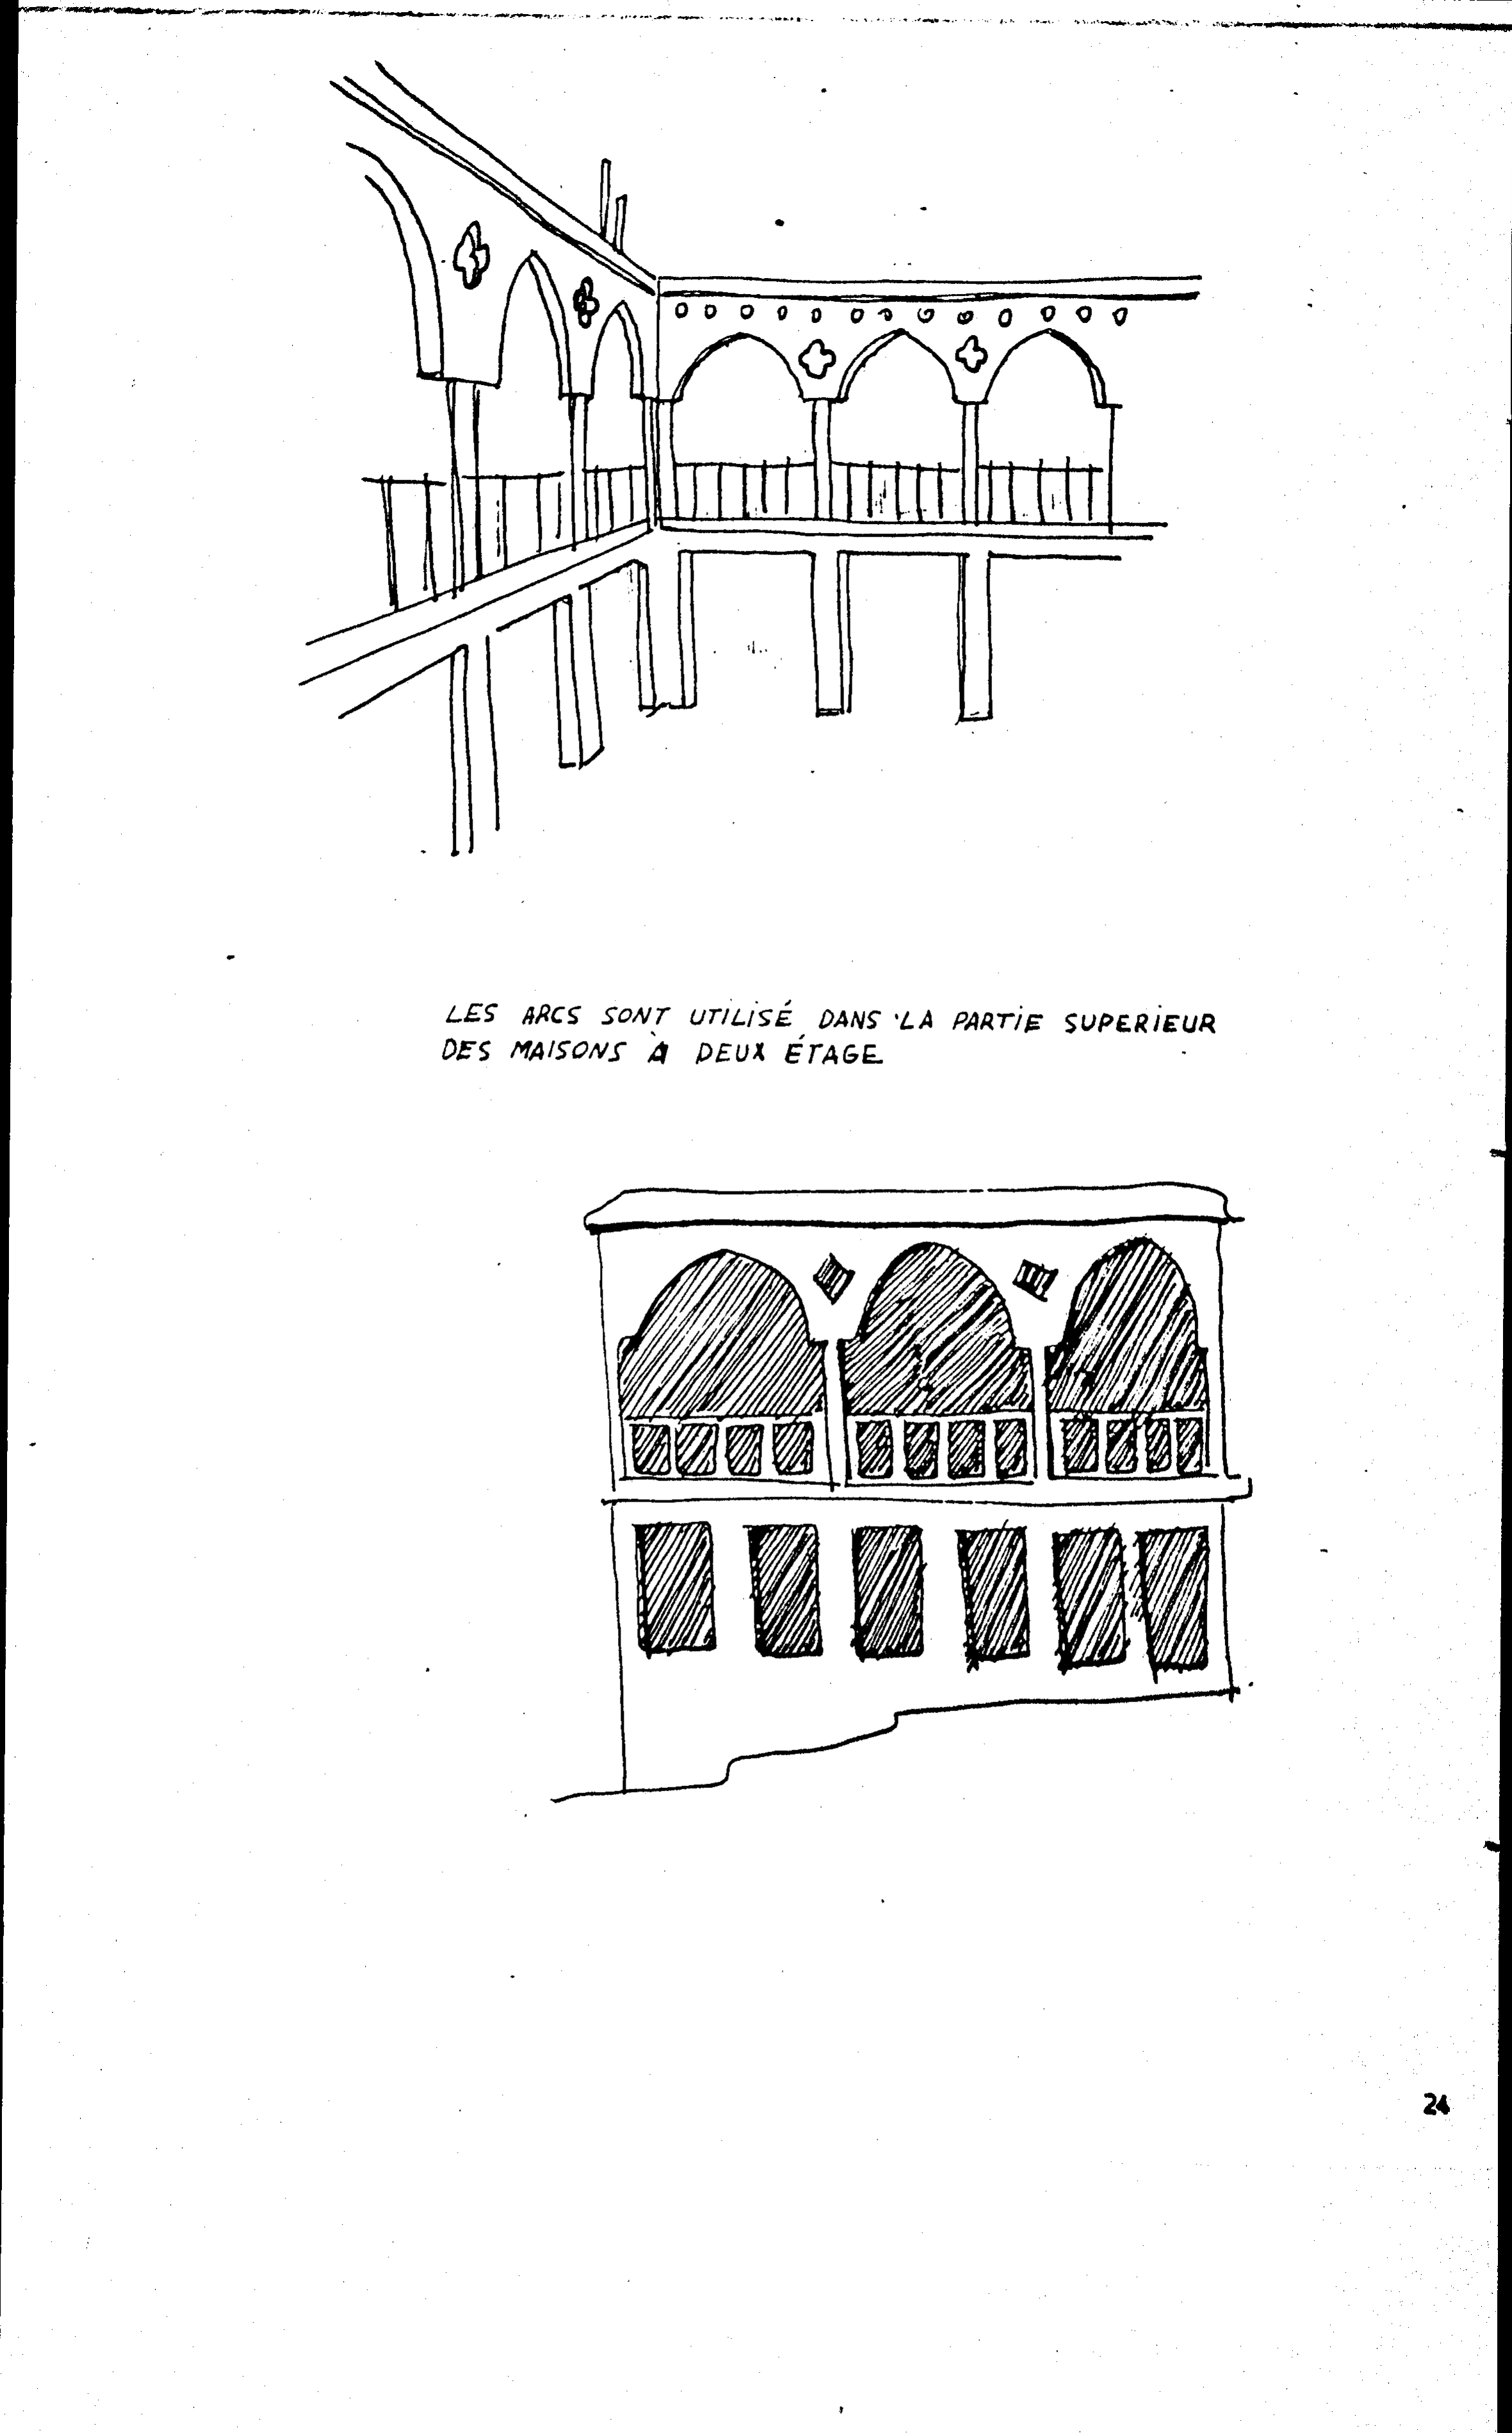 LES ARCS SONT UTILISÉ DANS LA PARTIE SUPERIEUR
DES MAISONS À DEUX ÉTAGE
24